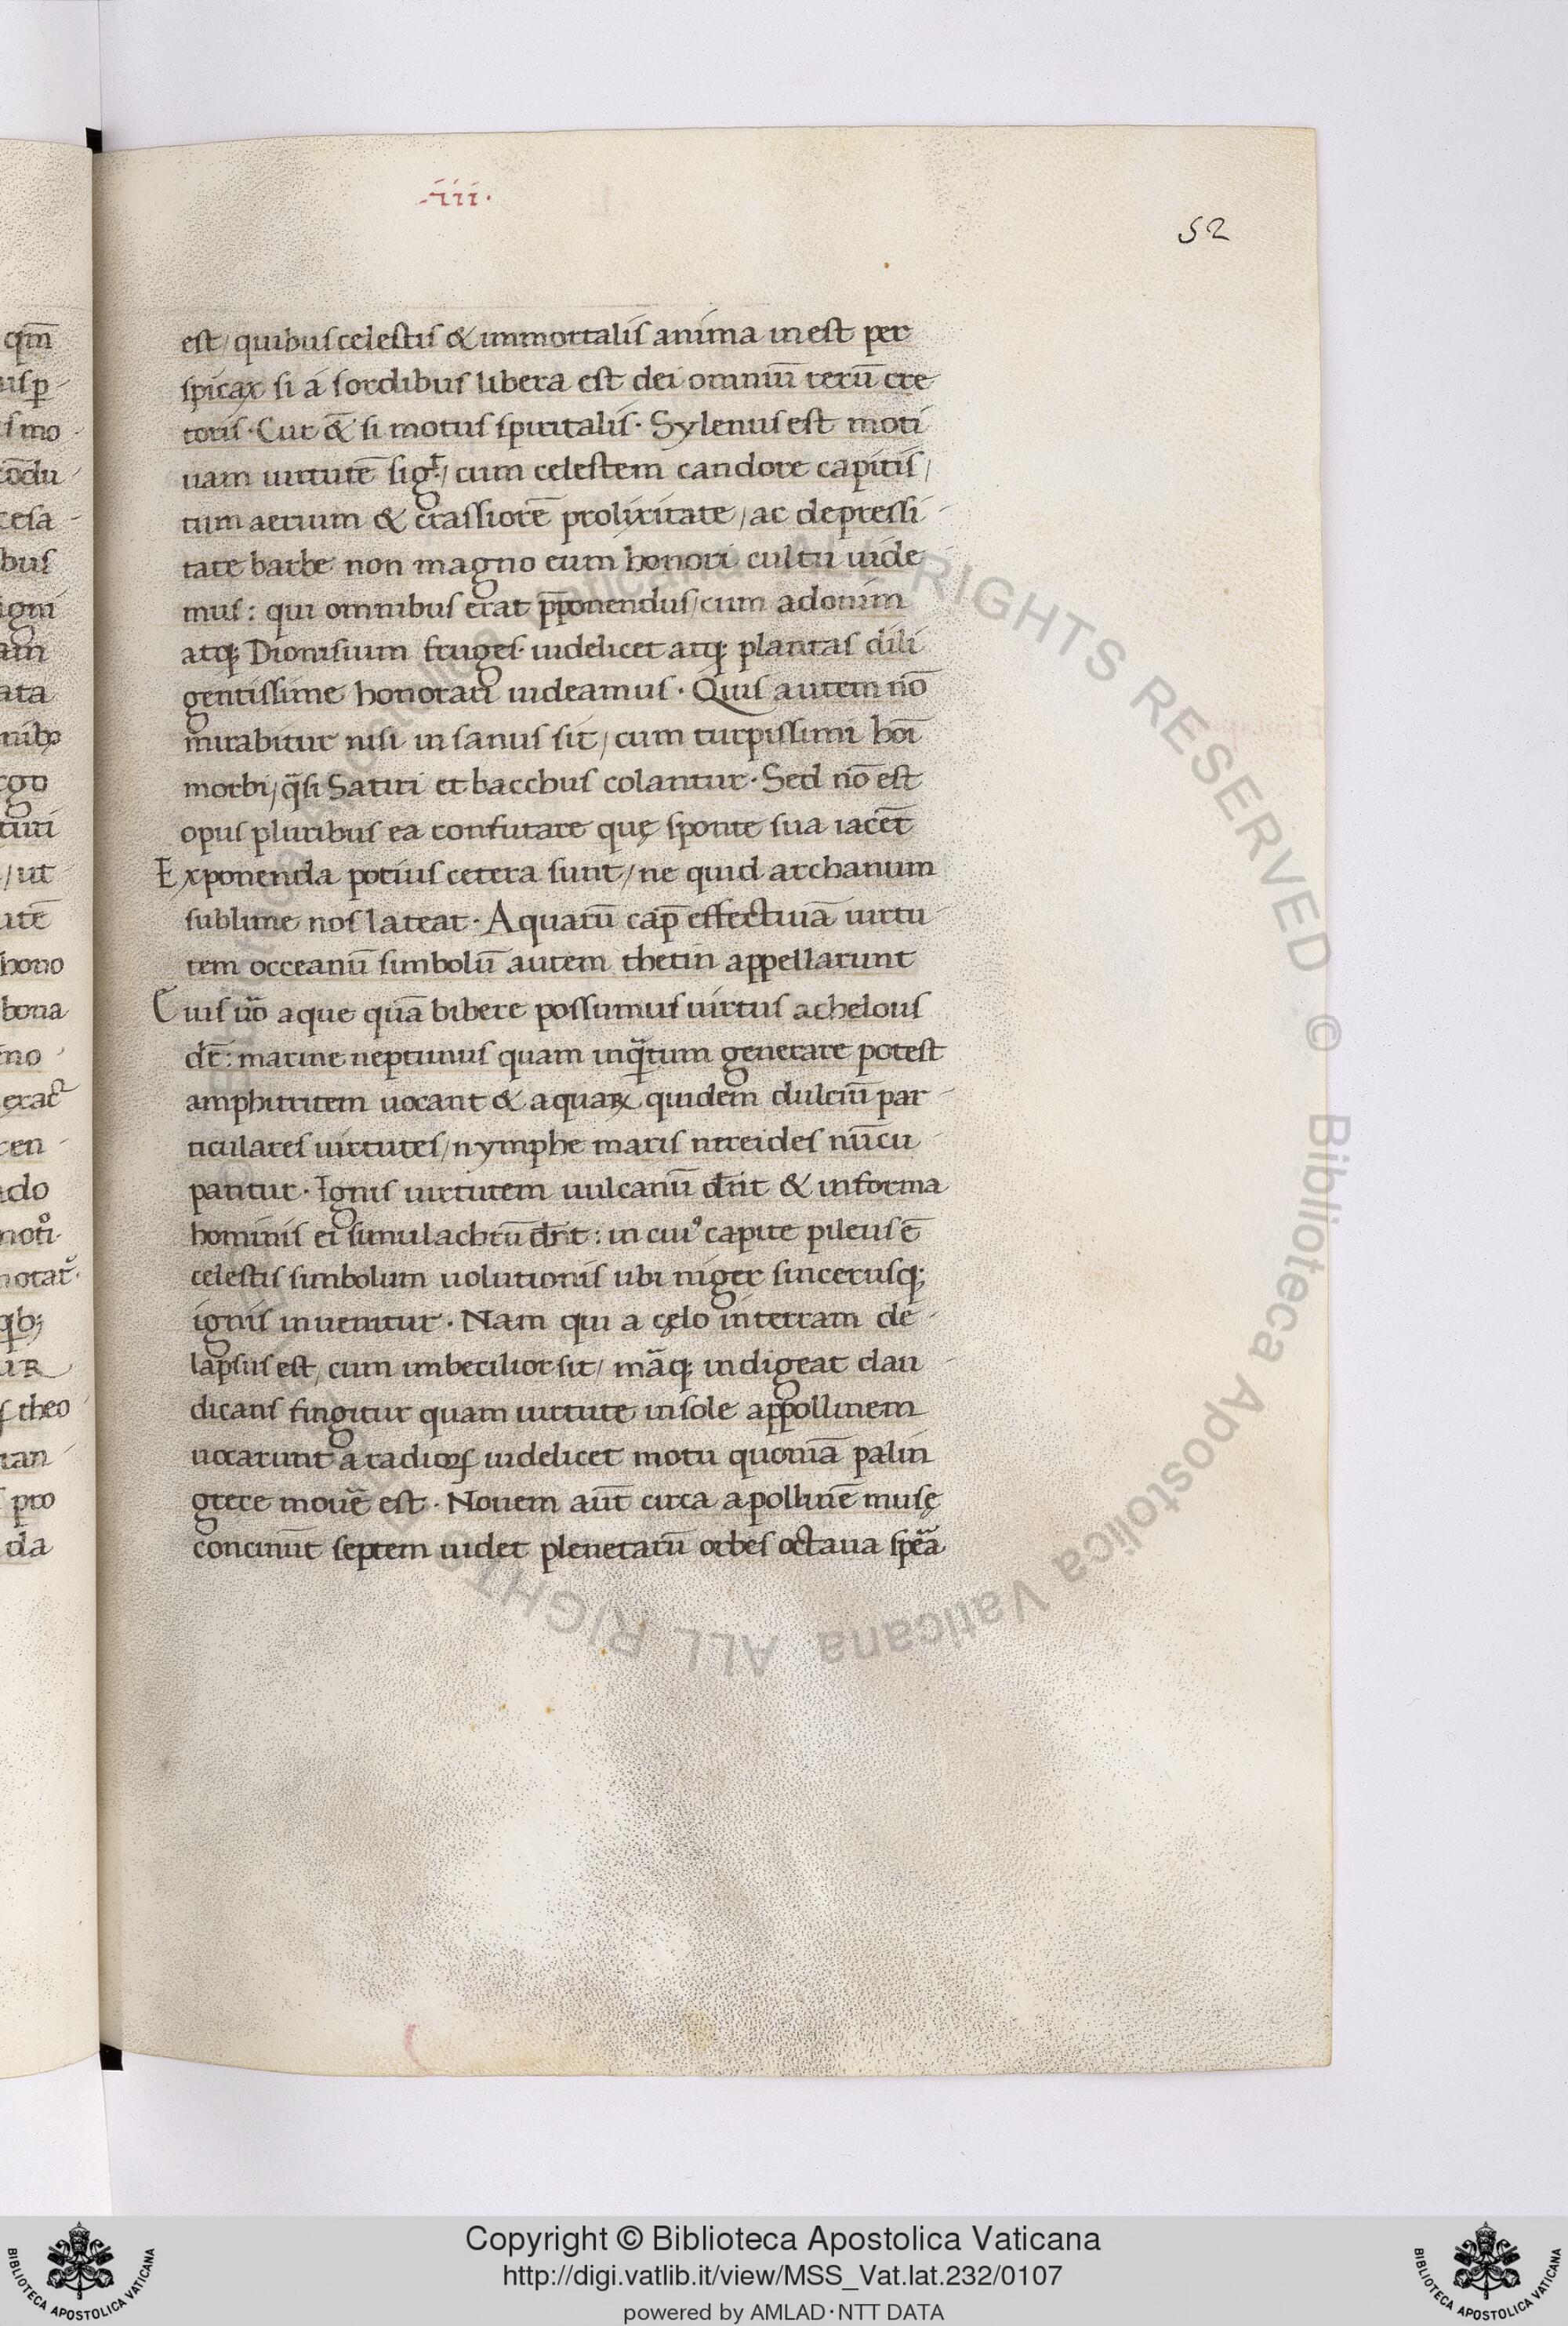 ·iii·
52
est/ quibus celestis & immortalis anima inest per
spicax si á sordibus libera est dei omniū rerū cre
toris · Cur &̄ si motus spiritalis · Sylenus est moti
uam uirtutē sigt̄·/ cum celestem candore capitis/
tum aerium & crassiorē prolixitate/ ac depressi
tate barbe non magno eum honori cultu uide
mus: qui omnibus erat p̄ponendus/ cum adonim
atq; Dionisium fruges· uidelicet atq; plantas dili
gentissime honorari uideamus · Quis autem nō
mirabitur nisi insanus sit/ cum turpissimi hoī
morbi/ q̄si Satiri et bacchus colantur · Sed nō est
opus pluribus ea confutare quę sponte sua iacēt
Exponenda potius cetera sunt/ ne quid archanum
sublime nos lateat · Aquarū cap̄ effectiuā uirtu
tem occeanū simbolū autem thetin appellarunt
Cuis ūo aque quā bibere possumus uirtus achelous
dr̄: marine neptunus quam inq̄tum generare potest
amphitritem uocant & aquaꝝ quidem dulciū par
ticulares uirtutes/ nymphe maris nereides nūcu
pantur · Ignis uirtutem uulcanū dn̄t & informa
hominis ei simulachrū dn̄t: in cuiꝰ capite pileus ē
celestis simbolum uolutionis ubi niger sincerusq;
ignis inuenitur · Nam qui a cęlo interram de
lapsus est, cum imbecilior sit/ māq; indigeat clau
dicans fingitur quam uirtute insole appollinem
uocarunt a radioꝝ uidelicet motu quoniā palin
grece mouē est · Nouem aūt circa apollinē musę
concinūt septem uidet plenetarū orbes octaua spēā
qm̄
uisp̄
s mo
cōdu
cesa
bus
igni
am
ata
nibꝫ
rgo
turi
/ ut
utē
bono
bona
mo
exac̄
cen
do
noti
notat̄·
qb;
UR
s theo
ian
pro
da
Copyright © Biblioteca Apostolica Vaticana
http://digi.vatlib.it/view/MSS_Vat.lat.232/0107
powered by AMLAD·NTT DATA
BIBLIOTECA APOSTOLICA VATICANA
BIBLIOTECA APOSTOLICA VATICANA
© Biblioteca Apostolica Vaticana ALL RIGHTS RESERVED © Biblioteca Apostolica Vaticana ALL RIGHTS RESERVED